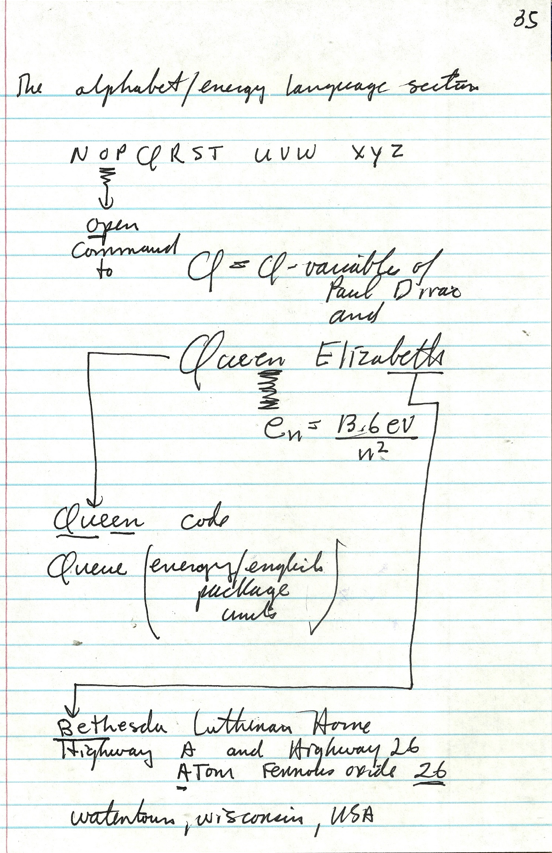 35
The alphabet/energy language section
N O P Q R S T U V W X Y Z
open
Command
to
Q = Q-variables of
Paul Dirac
and
Queen Elizabeth
en = 13.6 eV
n²
Queen code
Queue (energy/english
package
units)
Bethesda Lutheran Home
Highway A and Highway 26
ATom Ferrous oxide 26
Watertown, Wisconsin, USA